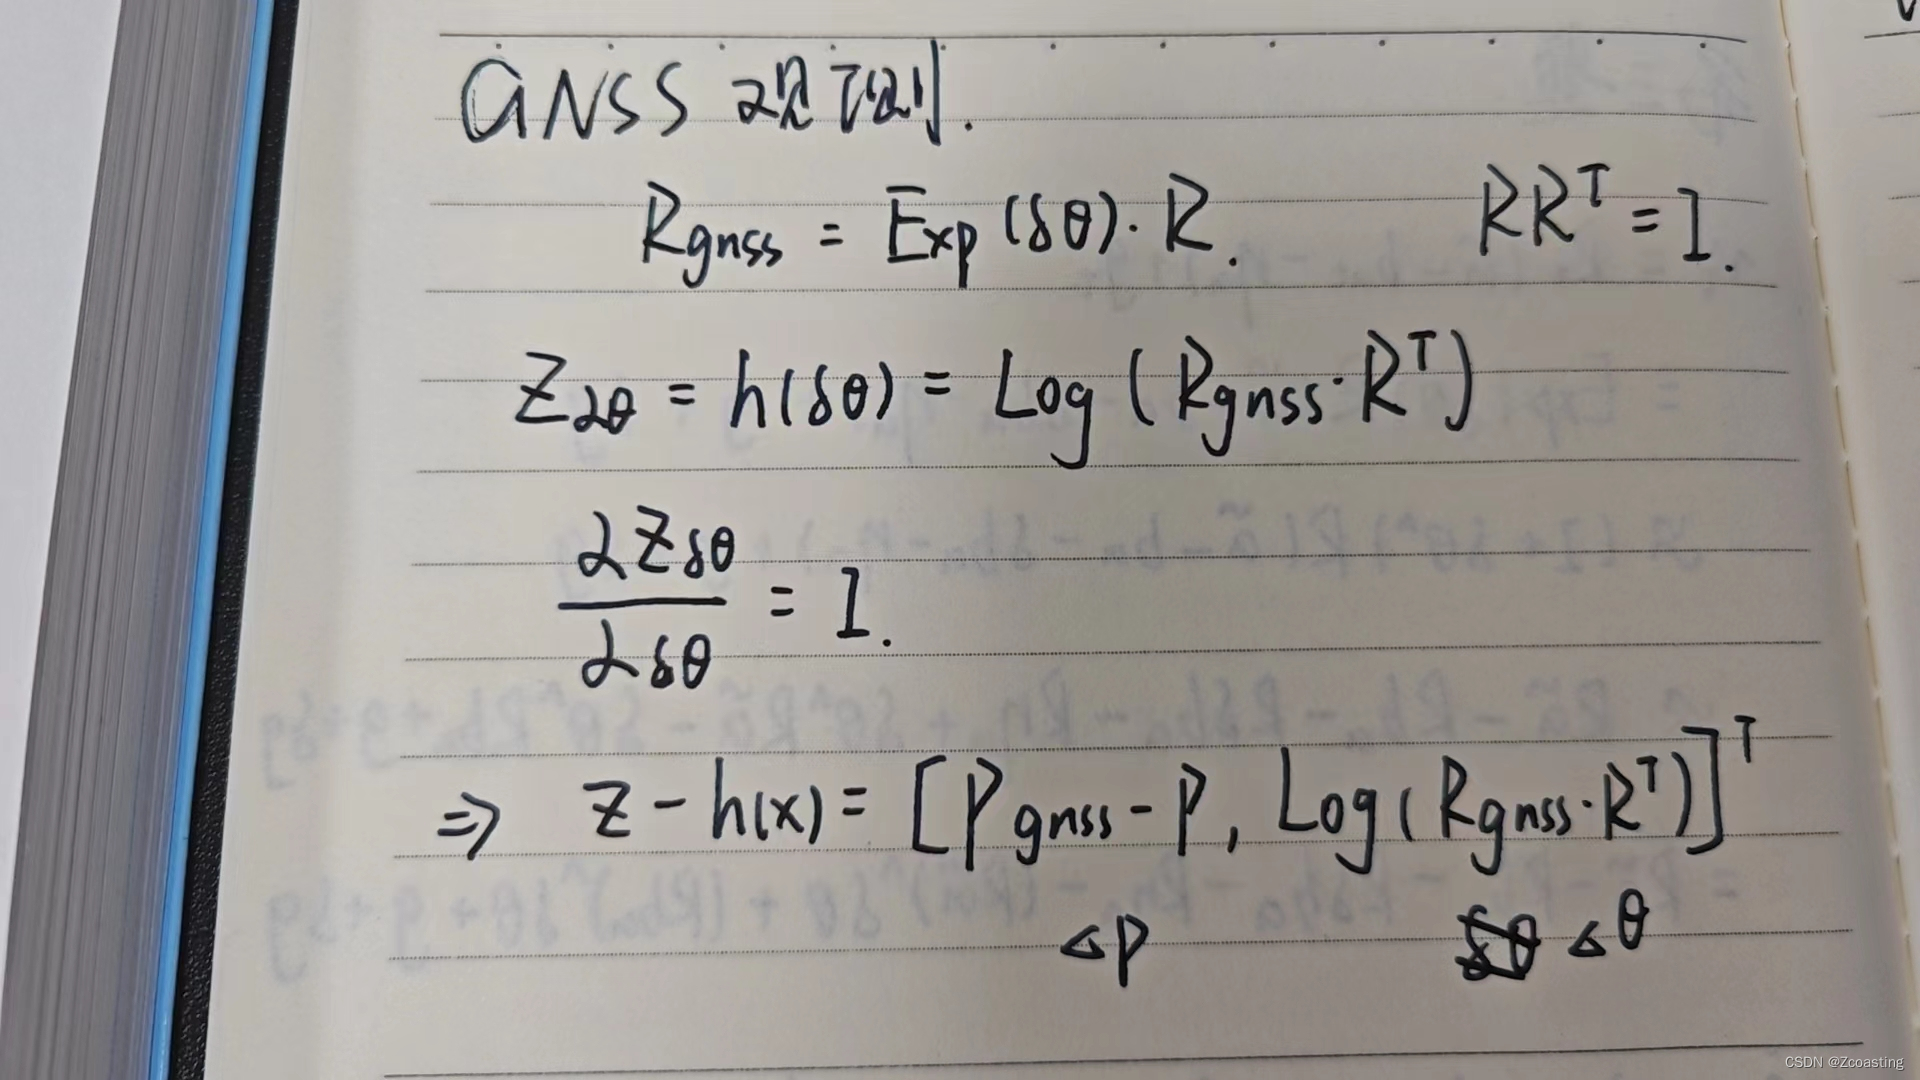 GNSS 观测.
Rgnss = Exp(δθ)·R. RRᵀ = I.
Z∂θ = h(δθ) = Log(Rgnss·Rᵀ)
∂Zδθ
= I.
∂δθ
⇒ z - h(x) = [Pgnss - P, Log(Rgnss·Rᵀ)]ᵀ
△P △θ
CSDN @Zcoasting